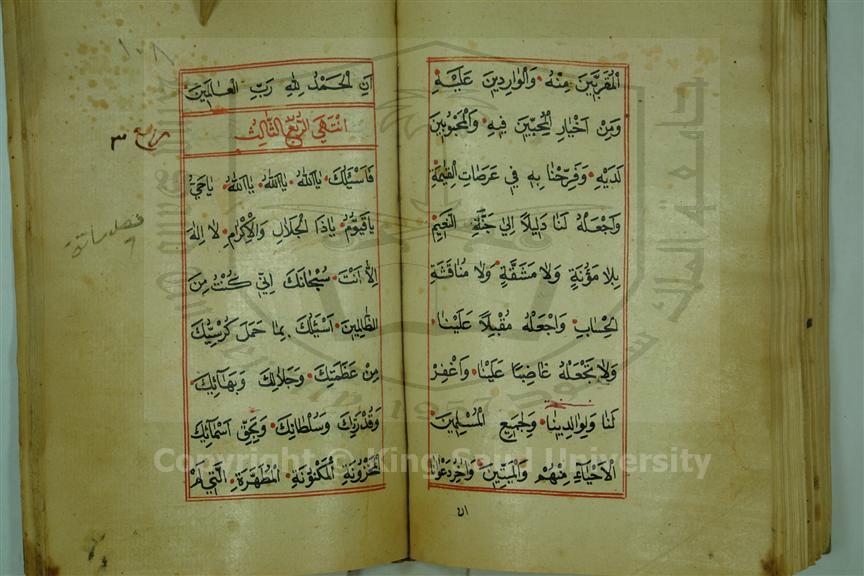 المُقَرَّبِينَ مِنْهُ وَالْوَارِدِينَ عَلَيْهِ
وَمِنْ أَخْيَارِ الْمُحِبِّينَ فِيهِ وَالْمَحْبُوبِينَ
لَدَيْهِ وَفَرِّحْنَا بِهِ فِي عَرَصَاتِ الْقِيٰمَةِ
وَاجْعَلْهُ لَنَا دَلِيلًا إِلَى جَنَّةِ النَّعِيمِ
بِلَا مَؤُنَةٍ وَلَا مَشَقَّةٍ وَلَا مُنَاقَشَةِ
الْحِسَابِ وَاجْعَلْهُ مُقْبِلًا عَلَيْنَا
وَلَا تَجْعَلْهُ غَاضِبًا عَلَيْنَا وَاغْفِرْ
لَنَا وَلِوَالِدِينَا وَلِجَمِيعِ الْمُسْلِمِينَ
الْأَحْيَاءِ مِنْهُمْ وَالْمَيِّتِينَ وَآخِرُ دَعْوَانَا
أَنِ الْحَمْدُ لِلّٰهِ رَبِّ الْعَالَمِينَ
انْتَهَى الرُّبْعُ الثَّالِثُ
ربع ٣
فَأَسْئَلُكَ يَا اَللّٰهُ يَا اَللّٰهُ يَا اَللّٰهُ يَا حَيُّ
يَا قَيُّومُ يَا ذَا الْجَلَالِ وَالْإِكْرَامِ لَا إِلٰهَ
إِلَّا أَنْتَ سُبْحَانَكَ إِنِّي كُنْتُ مِنَ
الظَّالِمِينَ أَسْئَلُكَ بِمَا حَمَلَ كُرْسِيُّكَ
مِنْ عَظَمَتِكَ وَجَلَالِكَ وَبَهَائِكَ
وَقُدْرَتِكَ وَسُلْطَانِكَ وَبِحَقِّ أَسْمَائِكَ
الْمَخْزُونَةِ الْمَكْنُونَةِ الْمُطَهَّرَةِ الَّتِي لَمْ
١٠٨
Copyright © King Saud University
1957